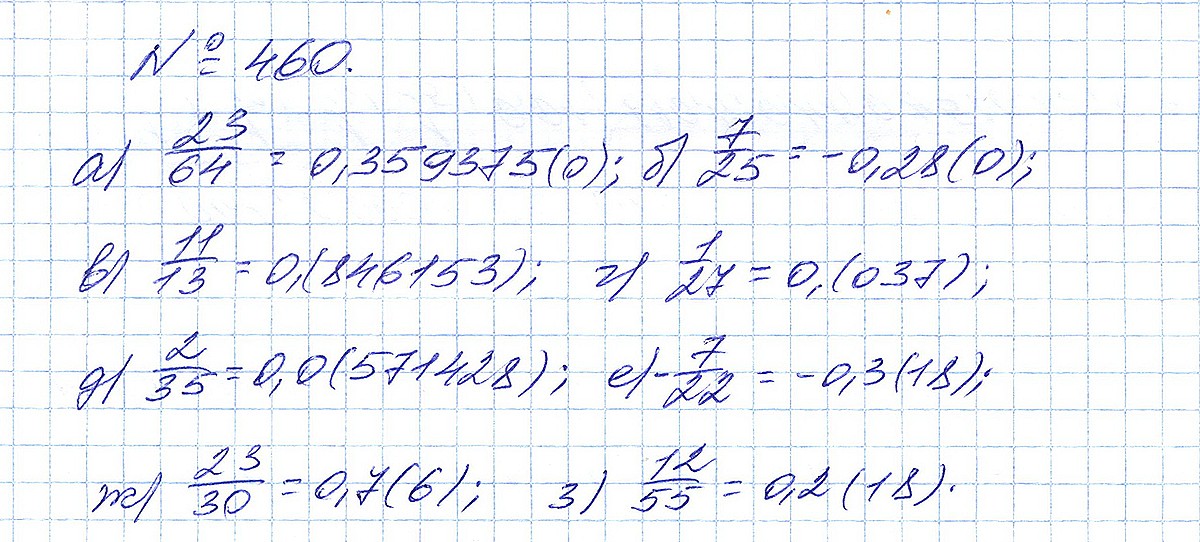 № 460.
а) 23/64 = 0,359375(0); б) 7/25 = -0,28(0);
в) 11/13 = 0,(846153); г) 1/27 = 0,(037);
д) 2/35 = 0,0(571428); е) -7/22 = -0,3(18);
ж) 23/30 = 0,7(6); з) 12/55 = 0,2(18).